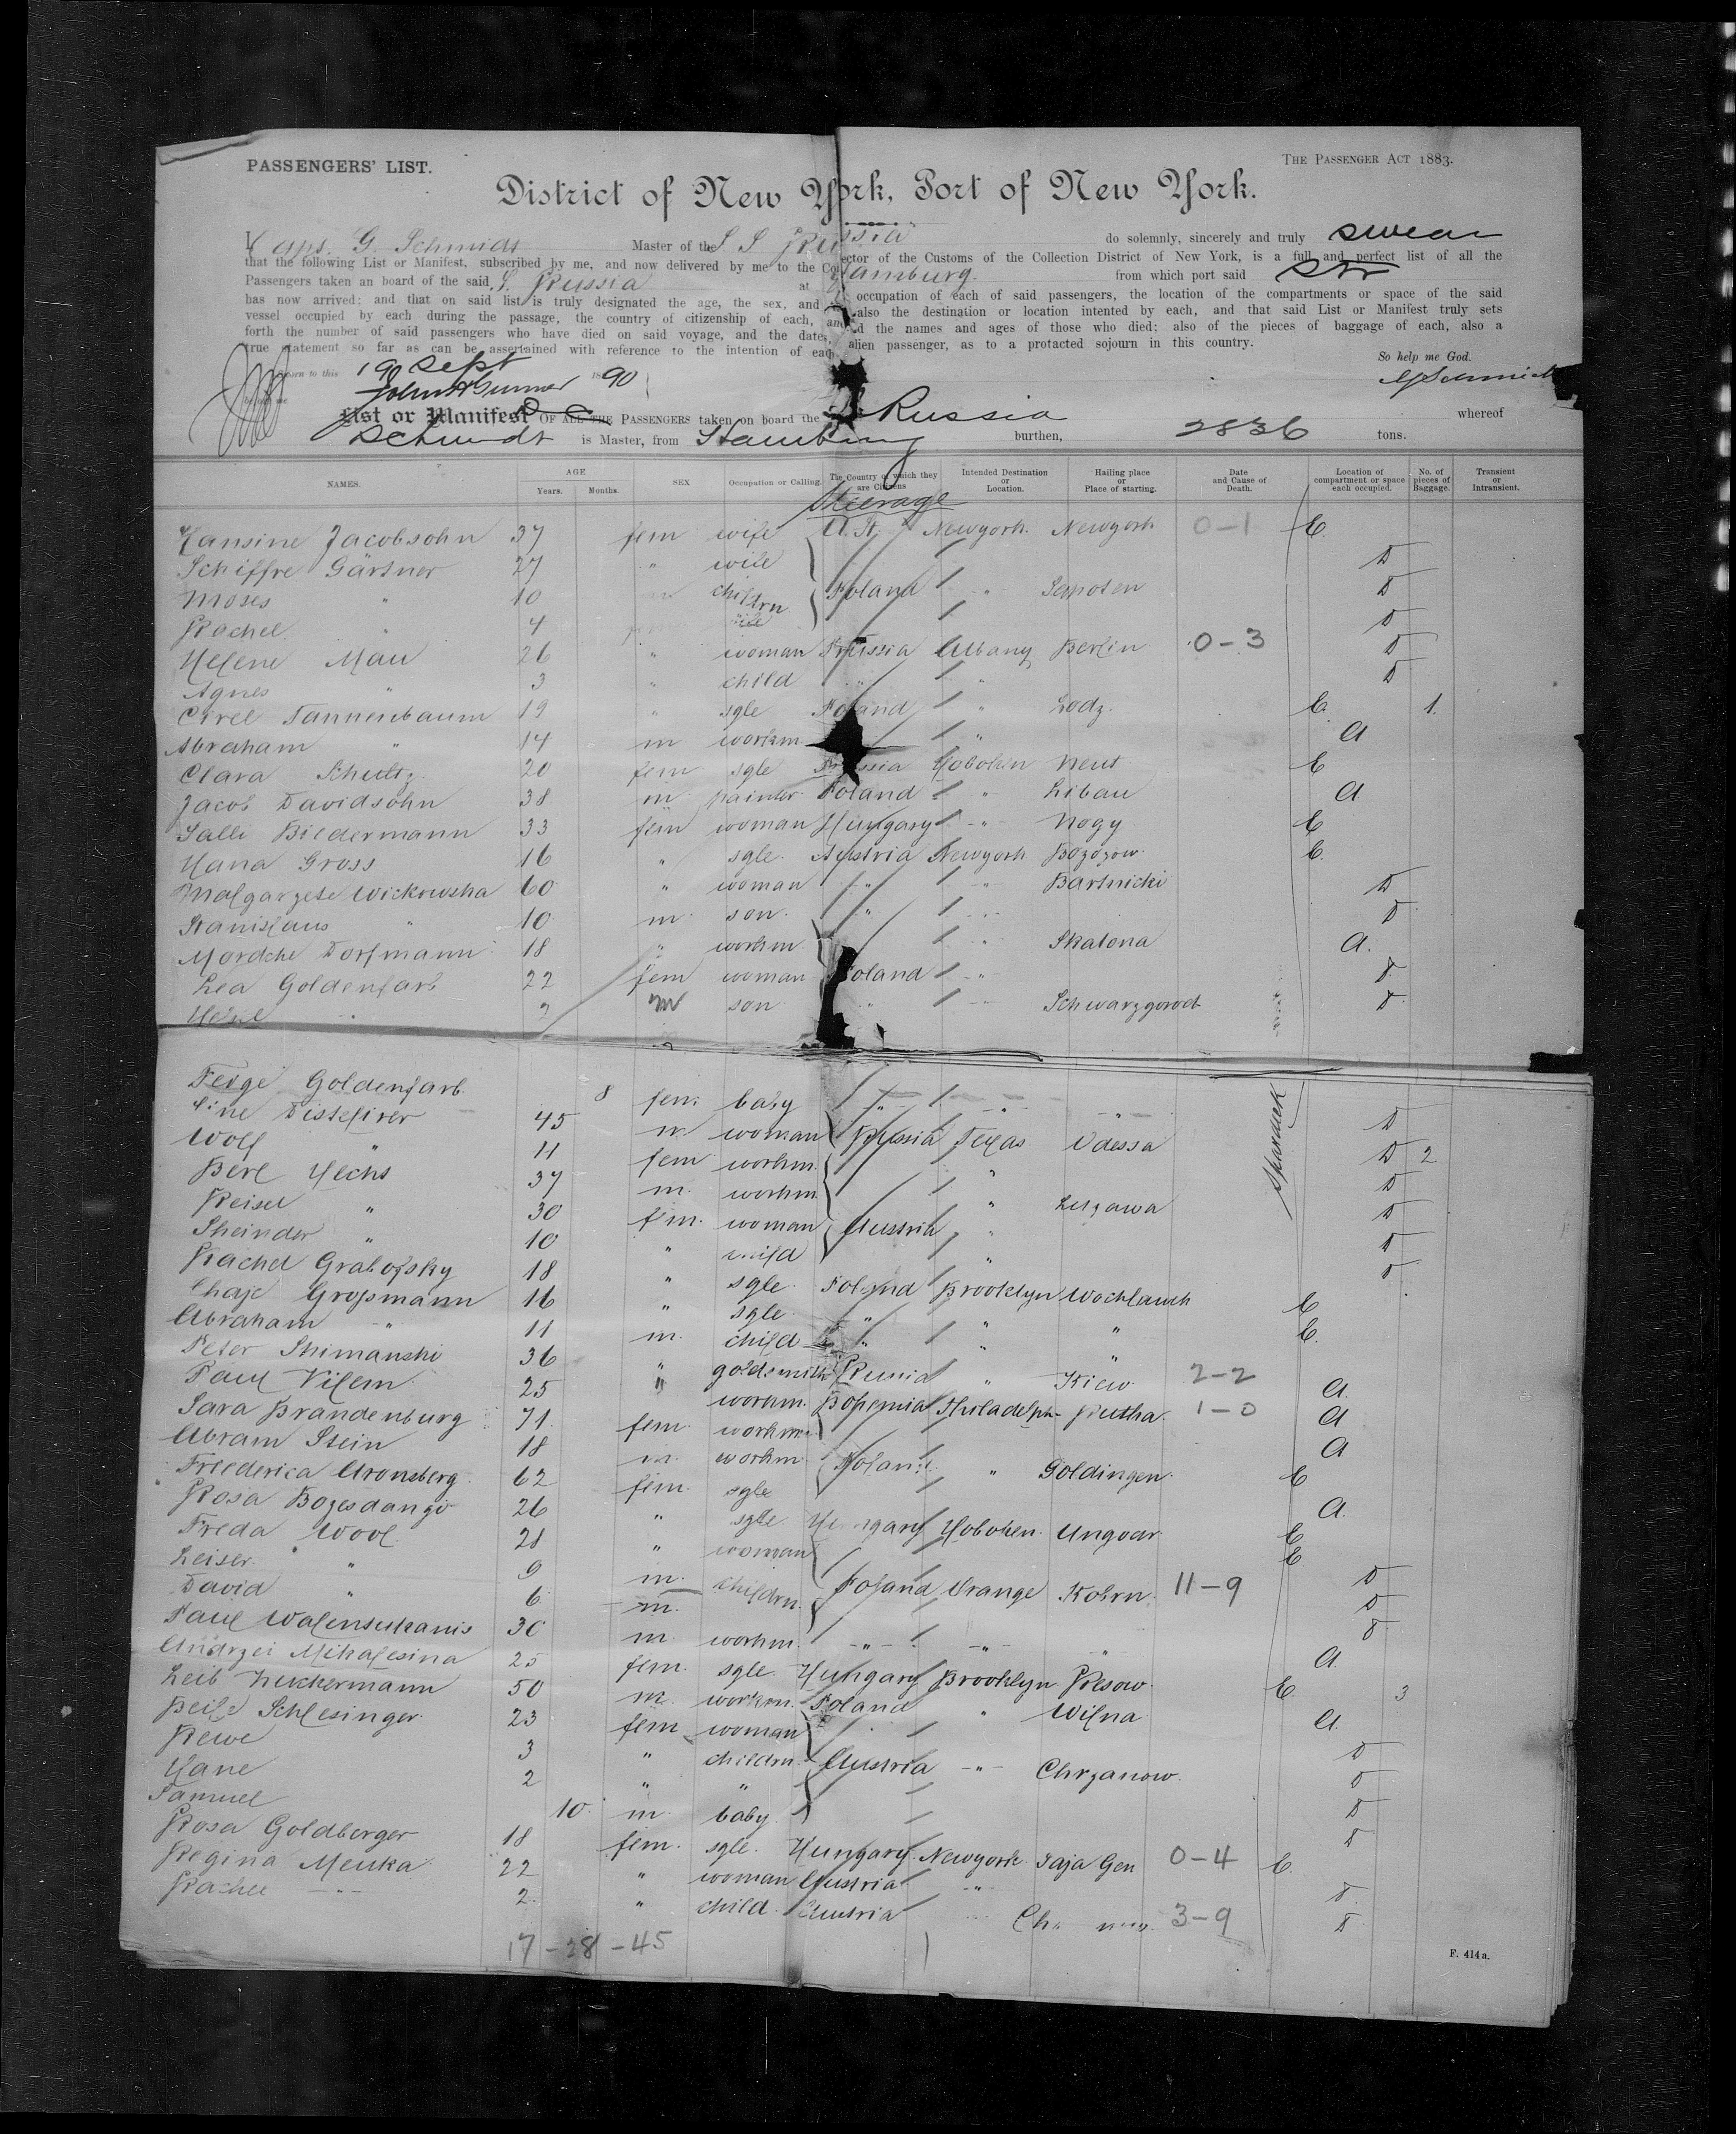 PASSENGERS' LIST.
THE PASSENGER ACT 1883.
District of New York, Port of New York.
Caps. G. Schmidt Master of the S S Russia do solemnly, sincerely and truly swear
that the following List or Manifest, subscribed by me, and now delivered by me to the Collector of the Customs of the Collection District of New York, is a full and perfect list of all the
Passengers taken an board of the said S. Russia at Hamburg from which port said Str
has now arrived; and that on said list is truly designated the age, the sex, and occupation of each of said passengers, the location of the compartments or space of the said
vessel occupied by each during the passage, the country of citizenship of each, also the destination or location intented by each, and that said List or Manifest truly sets
forth the number of said passengers who have died on said voyage, and the dates, and the names and ages of those who died; also of the pieces of baggage of each, also a
true statement so far as can be assertained with reference to the intention of each alien passenger, as to a protacted sojourn in this country.
So help me God.
Sworn to this 19 Sept 1890
G Schmidt
List or Manifest OF ALL THE PASSENGERS taken on board the Russia whereof
Schmidt is Master, from Hamburg burthen, 2836 tons.
NAMES. AGE Years. Months. SEX Occupation or Calling. The Country of which they are Citizens Intended Destination or Location. Hailing place or Place of starting. Date and Cause of Death. Location of compartment or space each occupied. No. of pieces of Baggage. Transient or Intransient.
Steerage
Hansine Jacobsohn 37 fem wife U. St. Newyork Newyork 0-1 C.
Schiffre Gärtner 27 " wife D
Moses " 10 children Poland " D
Rachel " 4 D
Helene Mau 26 " woman Prussia Albany Berlin 0-3 D
Agnes " 3 " child " " D
Cirel Tannenbaum 19 " sgle Poland " Lodz. C. 1.
Abraham " 14 m workm " A
Clara Schultz 20 fem sgle Prussia Hoboken Neus C
Jacob Davidsohn 38 m painter Poland " Libau A
Salli Biedermann 33 fem woman Hungary " Nogy C
Hana Gross 16 " sgle. Austria Newyork Bozozow C.
Malgarzete Wickowska 60 " woman " " Bartnicki D
Stanislaus " 10 m son. " " D
Mordche Dorfmann 18 " workm " Skalona A.
Lea Goldenfarb 22 fem woman Poland " D
2 m son " " Schwarzgorod D
Feige Goldenfarb 8 fem baby " " " D
45 m woman Russia Texas Odessa
Wolf " 11 fem workm. " D 2
Berl Hechs 37 m. workm " D
Reisel " 30 fem. woman Austria " D
Scheinder " 10 " child " D
Rachel Grabofsky 18 " sgle. Poland Brooklyn Wochlauch D
Chaje Grossmann 16 " sgle. " " " C
Abraham " 11 m. child " " " C.
Peter Shimanski 36 " goldsmith Russia " Kiew 2-2
Paul Vilem 25 " workm. Bohemia Philadelph- Kutha. 1-0 A.
Sara Brandenburg 71. fem workm A
Abram Stein 18 m. workm Poland " Goldingen A
Friederica Aronsberg 62 fem. sgle C
Rosa 26 " sgle Hungary Hoboken. Ungvar A.
Freda Wool 28 " woman C
Leiser " 9 m. children. Poland Orange Kobrn 11-9 C
David " 6 m. D
Paul 30 m workm. " " " D
Andrzei Mihalesina 25 fem. sgle. Hungary Brooklyn Resow. A
Leib Zuckermann 50 m. workm. Poland " Wilna C. 3
Beile Schlesinger 23 fem woman A.
Rewe 3 " children. Austria " Chrzanow. D
Hane 2 " " D
Samuel 10. m. baby. D
Rosa Goldberger 18 fem. sgle. Hungary. Newyork Saja Gen 0-4 C.
Regina Menka 22 " woman Austria "
2. " child. Austria 3-9
17-28-45
F. 414 a.